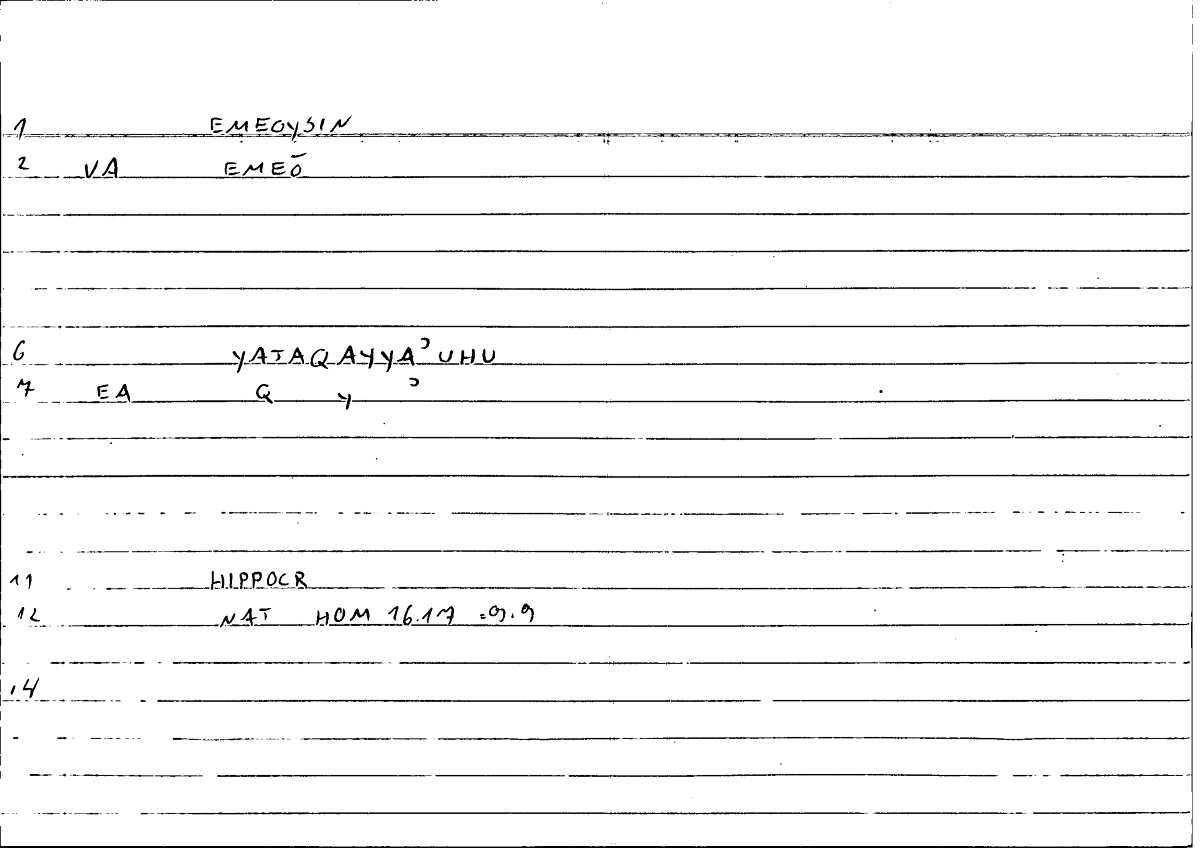 1 EMEOYSIN
2 VA EMEŌ
6 YATAQAYYAʾUHU
7 EA Q Y ʾ
11 HIPPOCR
12 NAT HOM 16.17 = 9.9
14